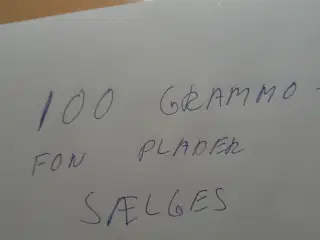 100 GRAMMO-
FON PLADER
SÆLGES